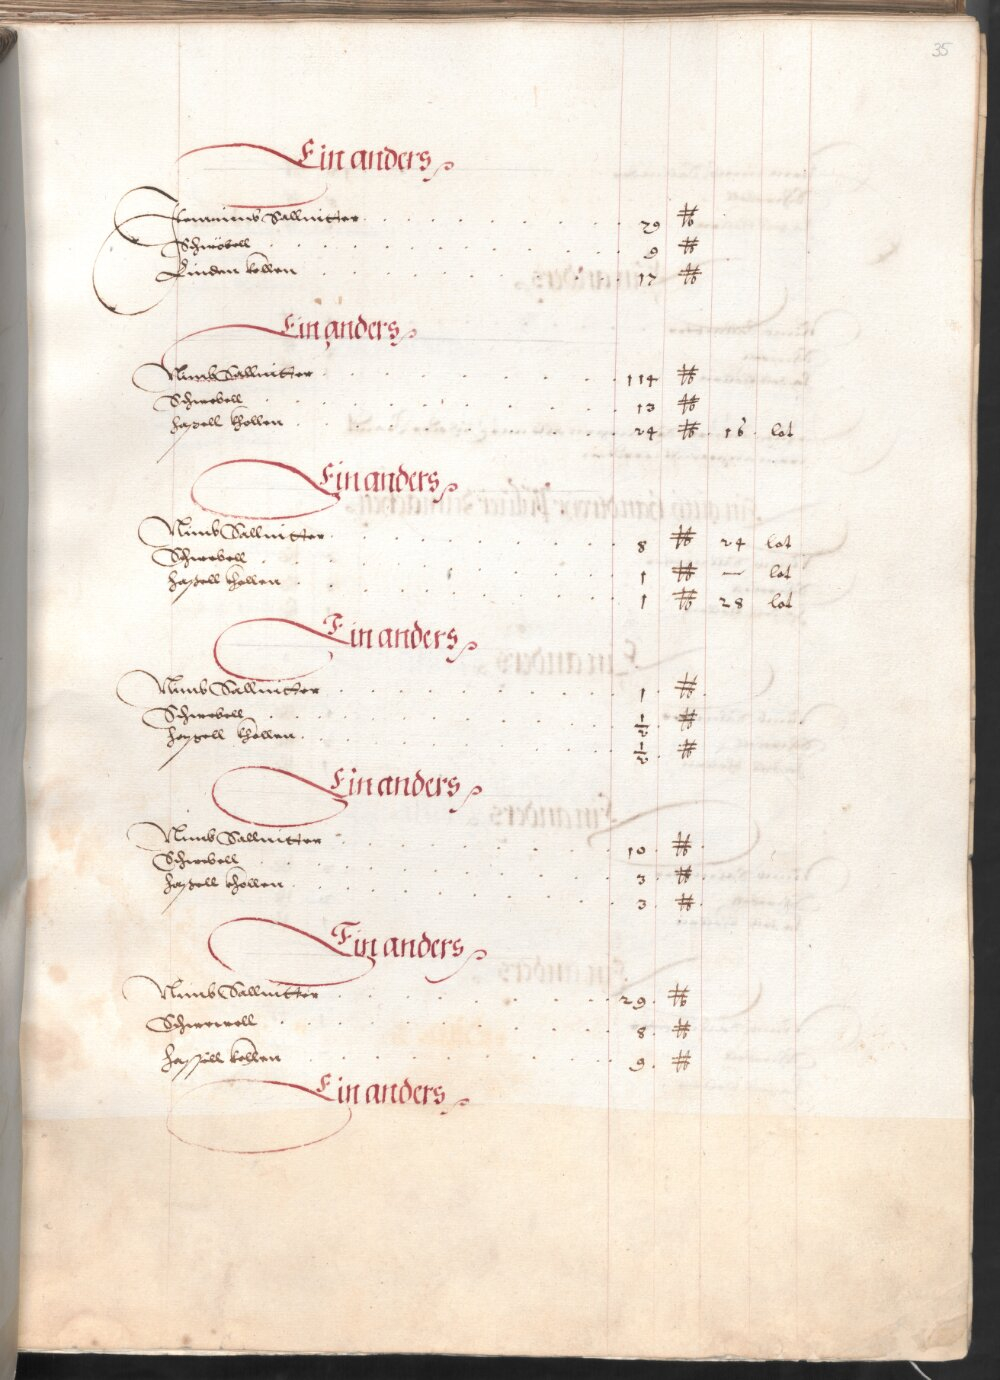 35
Ein anders
Nimb Sallnitter 29 ℔
Schwebell 9 ℔
Linden kollen 17 ℔
Ein anders
Nimb Sallnitter 114 ℔
Schwebell 13 ℔
haßell khollen 24 ℔ 16 lot
Ein anders
Nimb Sallnitter 8 ℔ 24 lot
Schwebell 1 ℔ — lot
haßell khollen 1 ℔ 28 lot
Ein anders
Nimb Sallnitter 1 ℔
Schwebell ½ ℔
haßell khollen ½ ℔
Ein anders
Nimb Sallnitter 10 ℔
Schwebell 3 ℔
haßell khollen 3 ℔
Ein anders
Nimb Sallnitter 29 ℔
Schwewell 8 ℔
hassell kollen 9 ℔
Ein anders